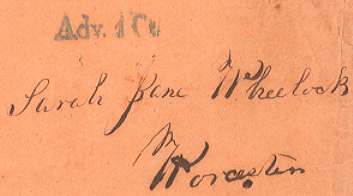 Adv. 1 Ct
Sarah Jane Wheelock
Worcester